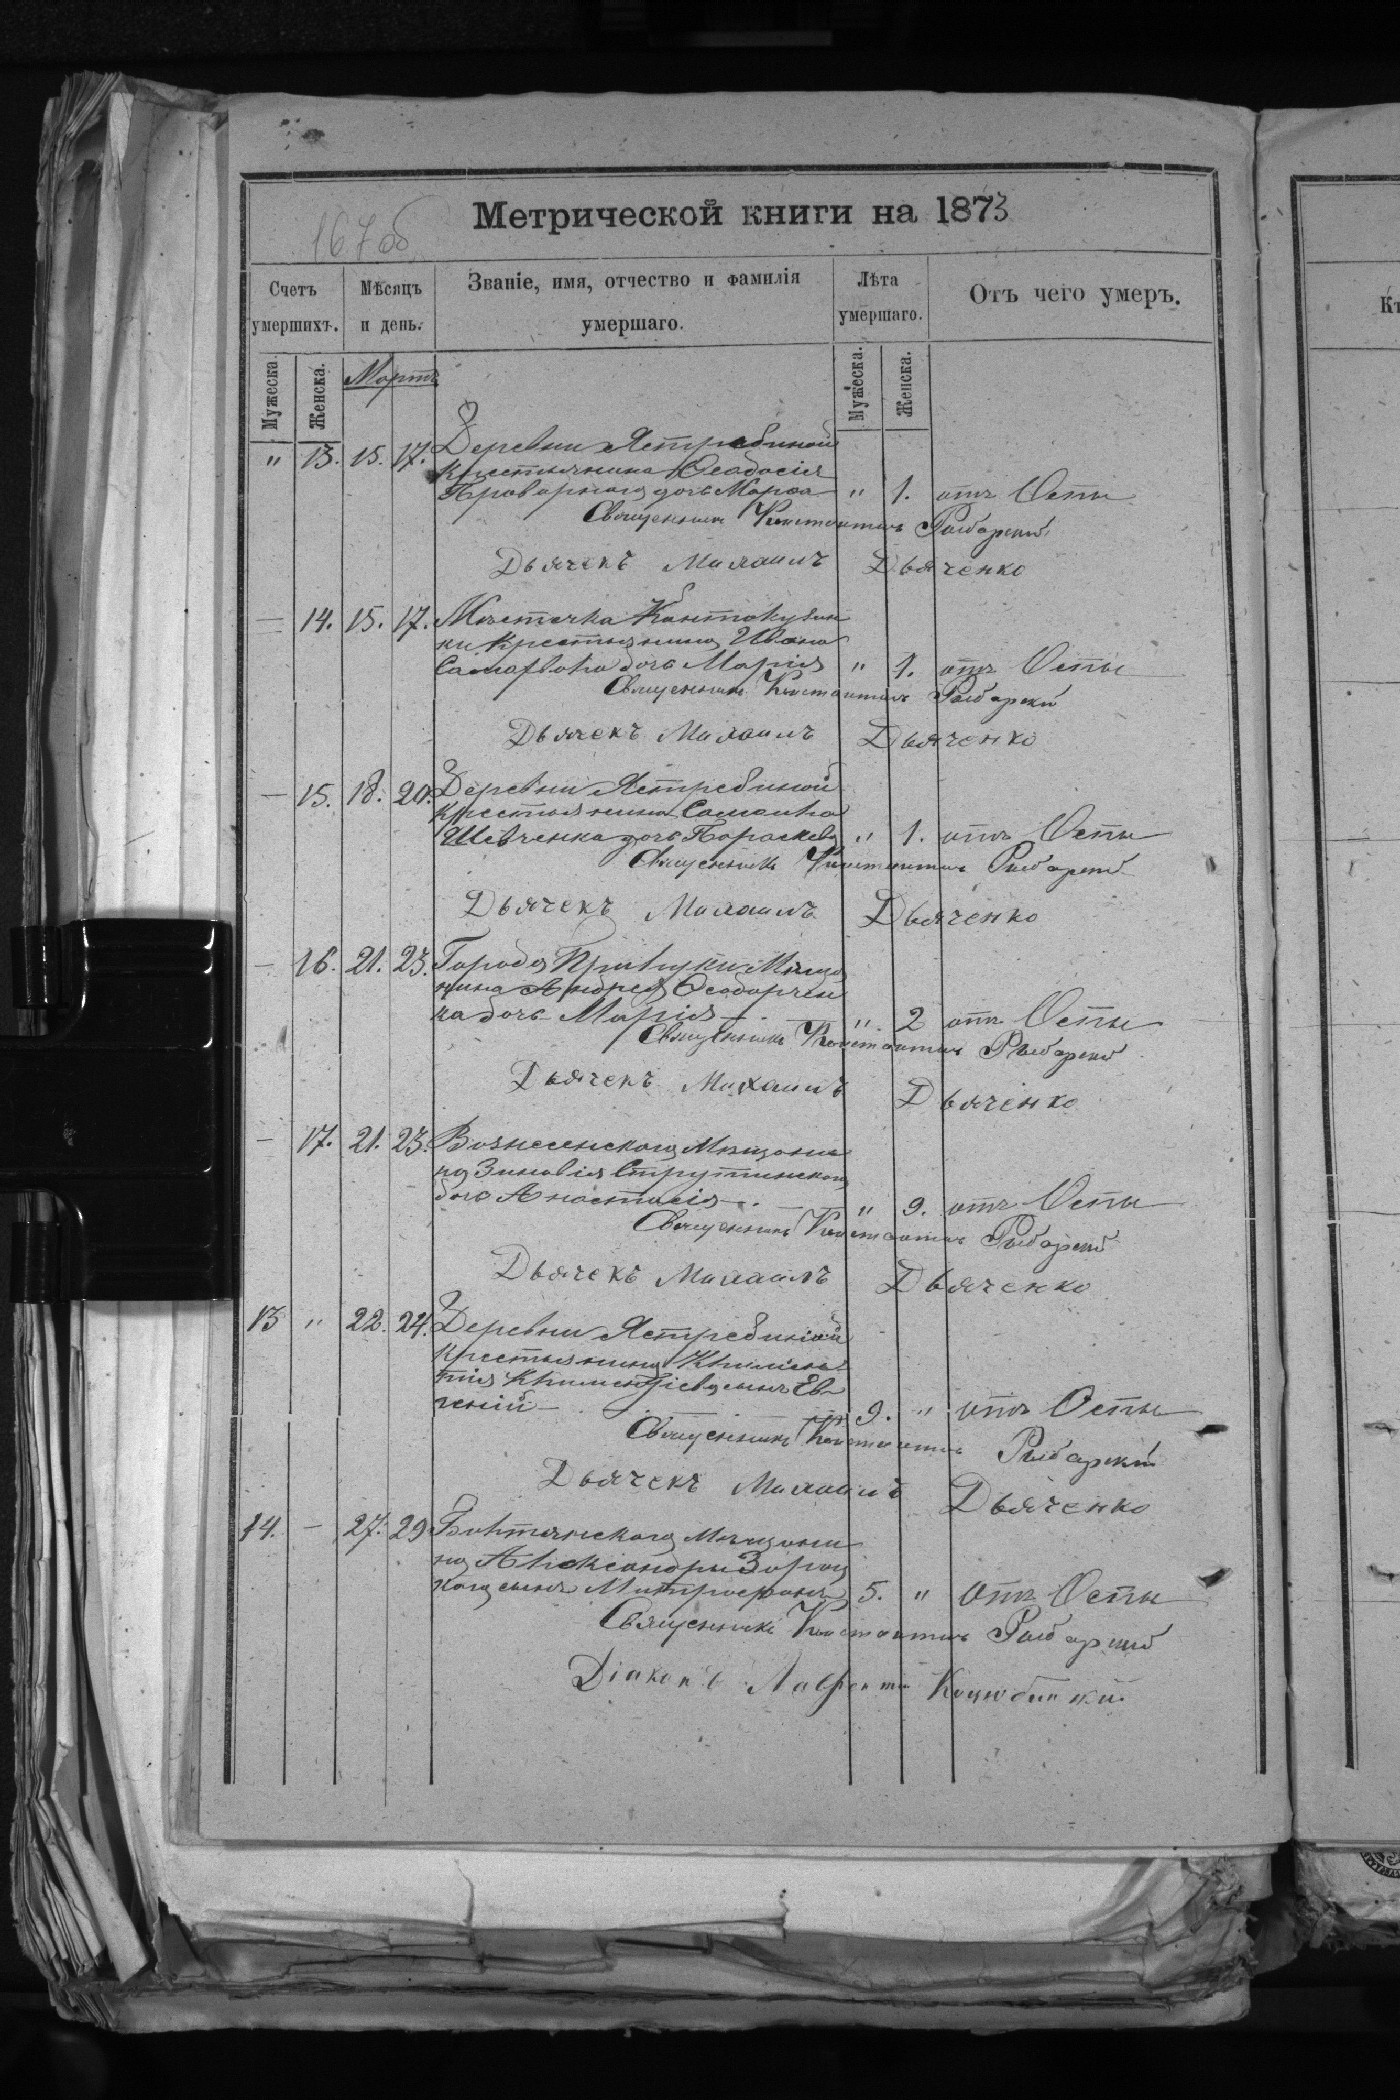 Метрической книги на 1873
167об
Счетъ умершихъ.
Мѣсяцъ и день.
Званіе, имя, отчество и фамилія умершаго.
Лѣта умершаго.
Отъ чего умеръ.
Мужеска.
Женска.
Мартъ
Мужеска.
Женска.
" 13. 15. 17. Деревни Ястребиной
крестьянина Ѳеодосія
дочь Марѳа " 1. отъ Оспы
Священникъ Константинъ Рыбарскій
Дьячекъ Михаилъ Дьяченко
— 14. 15. 17. Мѣстечка Кантакузин
ки крестьянина Ивана
дочь Марія " 1. отъ Оспы
Священникъ Константинъ Рыбарскій
Дьячекъ Михаилъ Дьяченко
— 15. 18. 20. Деревни Ястребиной
крестьянина
Шевченка дочь Параскева " 1. отъ Оспы
Священникъ Константинъ Рыбарскій
Дьячекъ Михаилъ Дьяченко
— 16. 21. 23. Города Прилуки Мѣща
нина Андрея Ѳеодорчен
ка дочь Марія —. " 2 отъ Оспы
Священникъ Константинъ Рыбарскій
Дьячекъ Михаилъ Дьяченко
— 17. 21. 23. Вознесенскаго Мѣщани
на Зиновія Струтинскаго
дочь Анастасія —. " 9. отъ Оспы
Священникъ Константинъ Рыбарскій
Дьячекъ Михаилъ Дьяченко
13 " 22. 24. Деревни Ястребиной
крестьянина Климен
тія сынъ Ев
геній — 9. " отъ Оспы
Священникъ Константинъ Рыбарскій
Дьячекъ Михаилъ Дьяченко
14. — 27. 29 Мѣщани
на Александры
сынъ Митрофанъ 5. " отъ Оспы
Священникъ Константинъ Рыбарскій
Діаконъ Лаврентій Коцюбинскій
Къ